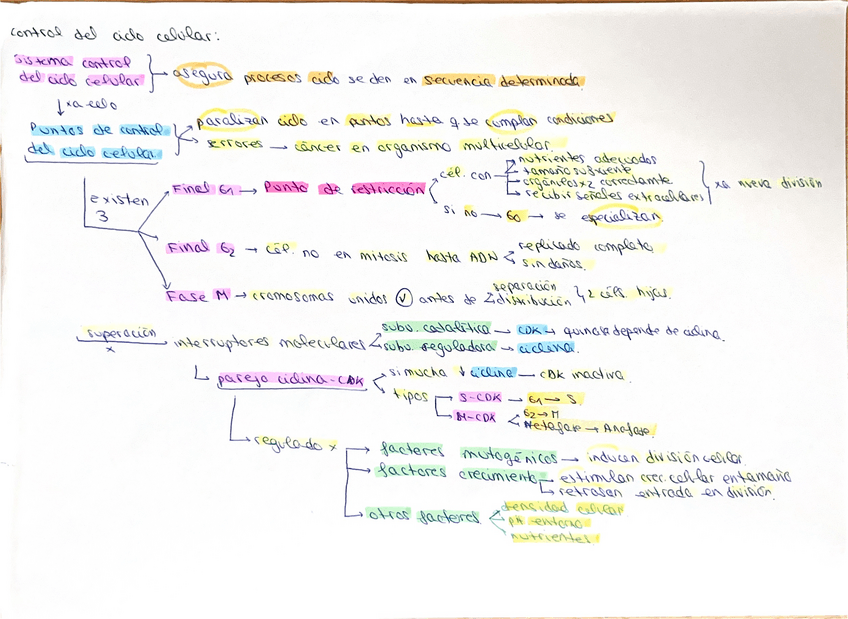 control del ciclo celular:
sistema control
del ciclo celular → asegura procesos ciclo se den en secuencia determinada
↓ xa ello
Puntos de control
del ciclo celular
paralizan ciclo en puntos hasta q se cumplan condiciones
si errores → cáncer en organismo multicelular.
existen
3
Final G1 → Punto de restricción
cél. con
nutrientes adecuados
tamaño suficiente
orgánulos x2 correctamte
recibir señales extracelulares
xa nueva división
si no → G0 → se especializan
Final G2 → cél. no en mitosis hasta ADN
replicado completo
sin daños.
Fase M → cromosomas unidos ✓ antes de
separación
distribución
2 céls. hijas.
superación
x
interruptores moleculares
subu. catalítica → CDK → quinasa depende de ciclina.
subu. reguladora → ciclina.
pareja ciclina-CDK
si mucha ↓ ciclina → CDK inactiva.
tipos
S-CDK → G1 → S.
M-CDK
G2 → M
Metafase → Anafase.
regulado x
factores mitogénicos → inducen división celular.
factores crecimiento
estimulan crec. celular en tamaño
retrasan entrada en división.
otros factores
densidad celular
pH entorno
nutrientes.